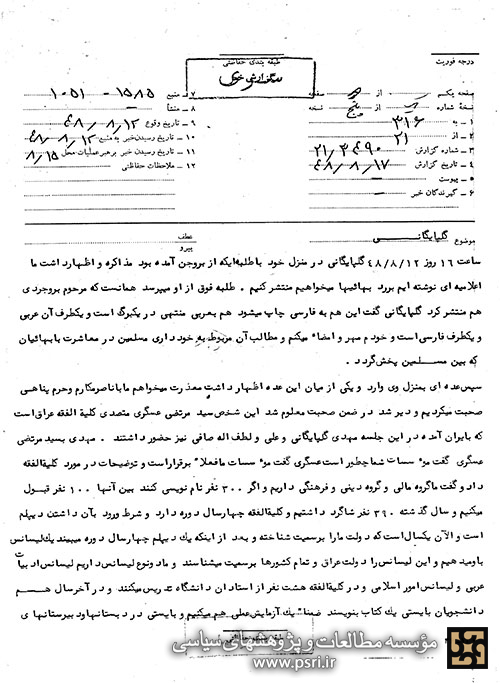 درجه فوریت
طبقه بندی حفاظتی
گزارش خبری
صفحه یکم از صفحه
نسخه شماره از پنج نسخه
۱ – به ۳۱۶
۲ – از ۲۱
۳ – شماره گزارش ۲۱/۳۶۹۰
۴ – تاریخ گزارش ۴۸/۸/۱۷
۵ – پیوست –
۶ – گیرندگان خبر –
۷ – منبع ۱۵۸۵ – ۱۰۵۱
۸ – منشأ –
۹ – تاریخ وقوع ۴۸/۸/۱۲
۱۰ – تاریخ رسیدن خبر به منبع ۴۸/۸/۱۲
۱۱ – تاریخ رسیدن خبر به رهبر عملیات محل ۸/۱۵
۱۲ – ملاحظات حفاظتی
موضوع گلپایگانی
عطف
پیرو
ساعت ۱۶ روز ۴۸/۸/۱۲ گلپایگانی در منزل خود با طلبه ایکه از بروجن آمده بود مذاکره و اظهار داشت ما
اعلامیه ای نوشته ایم برد بهائیها میخواهیم منتشر کنیم . طلبه فوق از او میپرسد همانست که مرحوم بروجردی
هم منتشر کرد گلپایگانی گفت این هم به فارسی چاپ میشود هم بعربی منتهی در یکبرگ است و یکطرف آن عربی
و یکطرف فارسی است و خودم مهر و امضاء میکنم و مطالب آن مربوط به خودداری مسلمین در معاشرت با بهائیان
که بین مسلمین پخش گردد .
سپس عده ای بمنزل وی وارد و یکی از میان این عده اظهار داشت معذرت میخواهم ما با ناصر مکارم و حرم پناهی
صحبت میکردیم و دیر شد در ضمن صحبت معلوم شد این شخص سید مرتضی عسگری متصدی کلیة الفقه عراق است
که بایران آمده در این جلسه مهدی گلپایگانی و علی و لطف اله صافی نیز حضور داشتند . مهدی بسید مرتضی
عسگری گفت موسسات شما چطور است عسگری گفت موسسات ما فعلا برقرار است و توضیحات در مورد کلیة الفقه
داد و گفت ما گروه مالی و گروه دینی و فرهنگی داریم و اگر ۳۰۰ نفر نام نویسی کنند بین آنها ۱۰۰ نفر قبول
میکنیم و سال گذشته ۳۹۰ نفر شاگرد داشتیم و کلیة الفقه چهار سال دوره دارد و شرط ورود بآن داشتن دیپلم
است و الآن یکسال است که دولت ما را برسمیت شناخته و بعد از اینکه یک دیپلم چهار سال دوره میبیند یک لیسانس
باو میدهیم و این لیسانس را دولت عراق و تمام کشورها برسمیت میشناسند و ما دو نوع لیسانس داریم لیسانس ادبیات
عربی و لیسانس امور اسلامی و در کلیة الفقه هشت نفر از استادان دانشگاه تدریس میکنند و در آخر سال هم
دانشجویان بایستی یک کتاب بنویسند ضمنا یک آزمایش علی هم میکنیم و بایستی در دبستانها و دبیرستانهای
مؤسسه مطالعات و پژوهشهای سیاسی
www.psri.ir